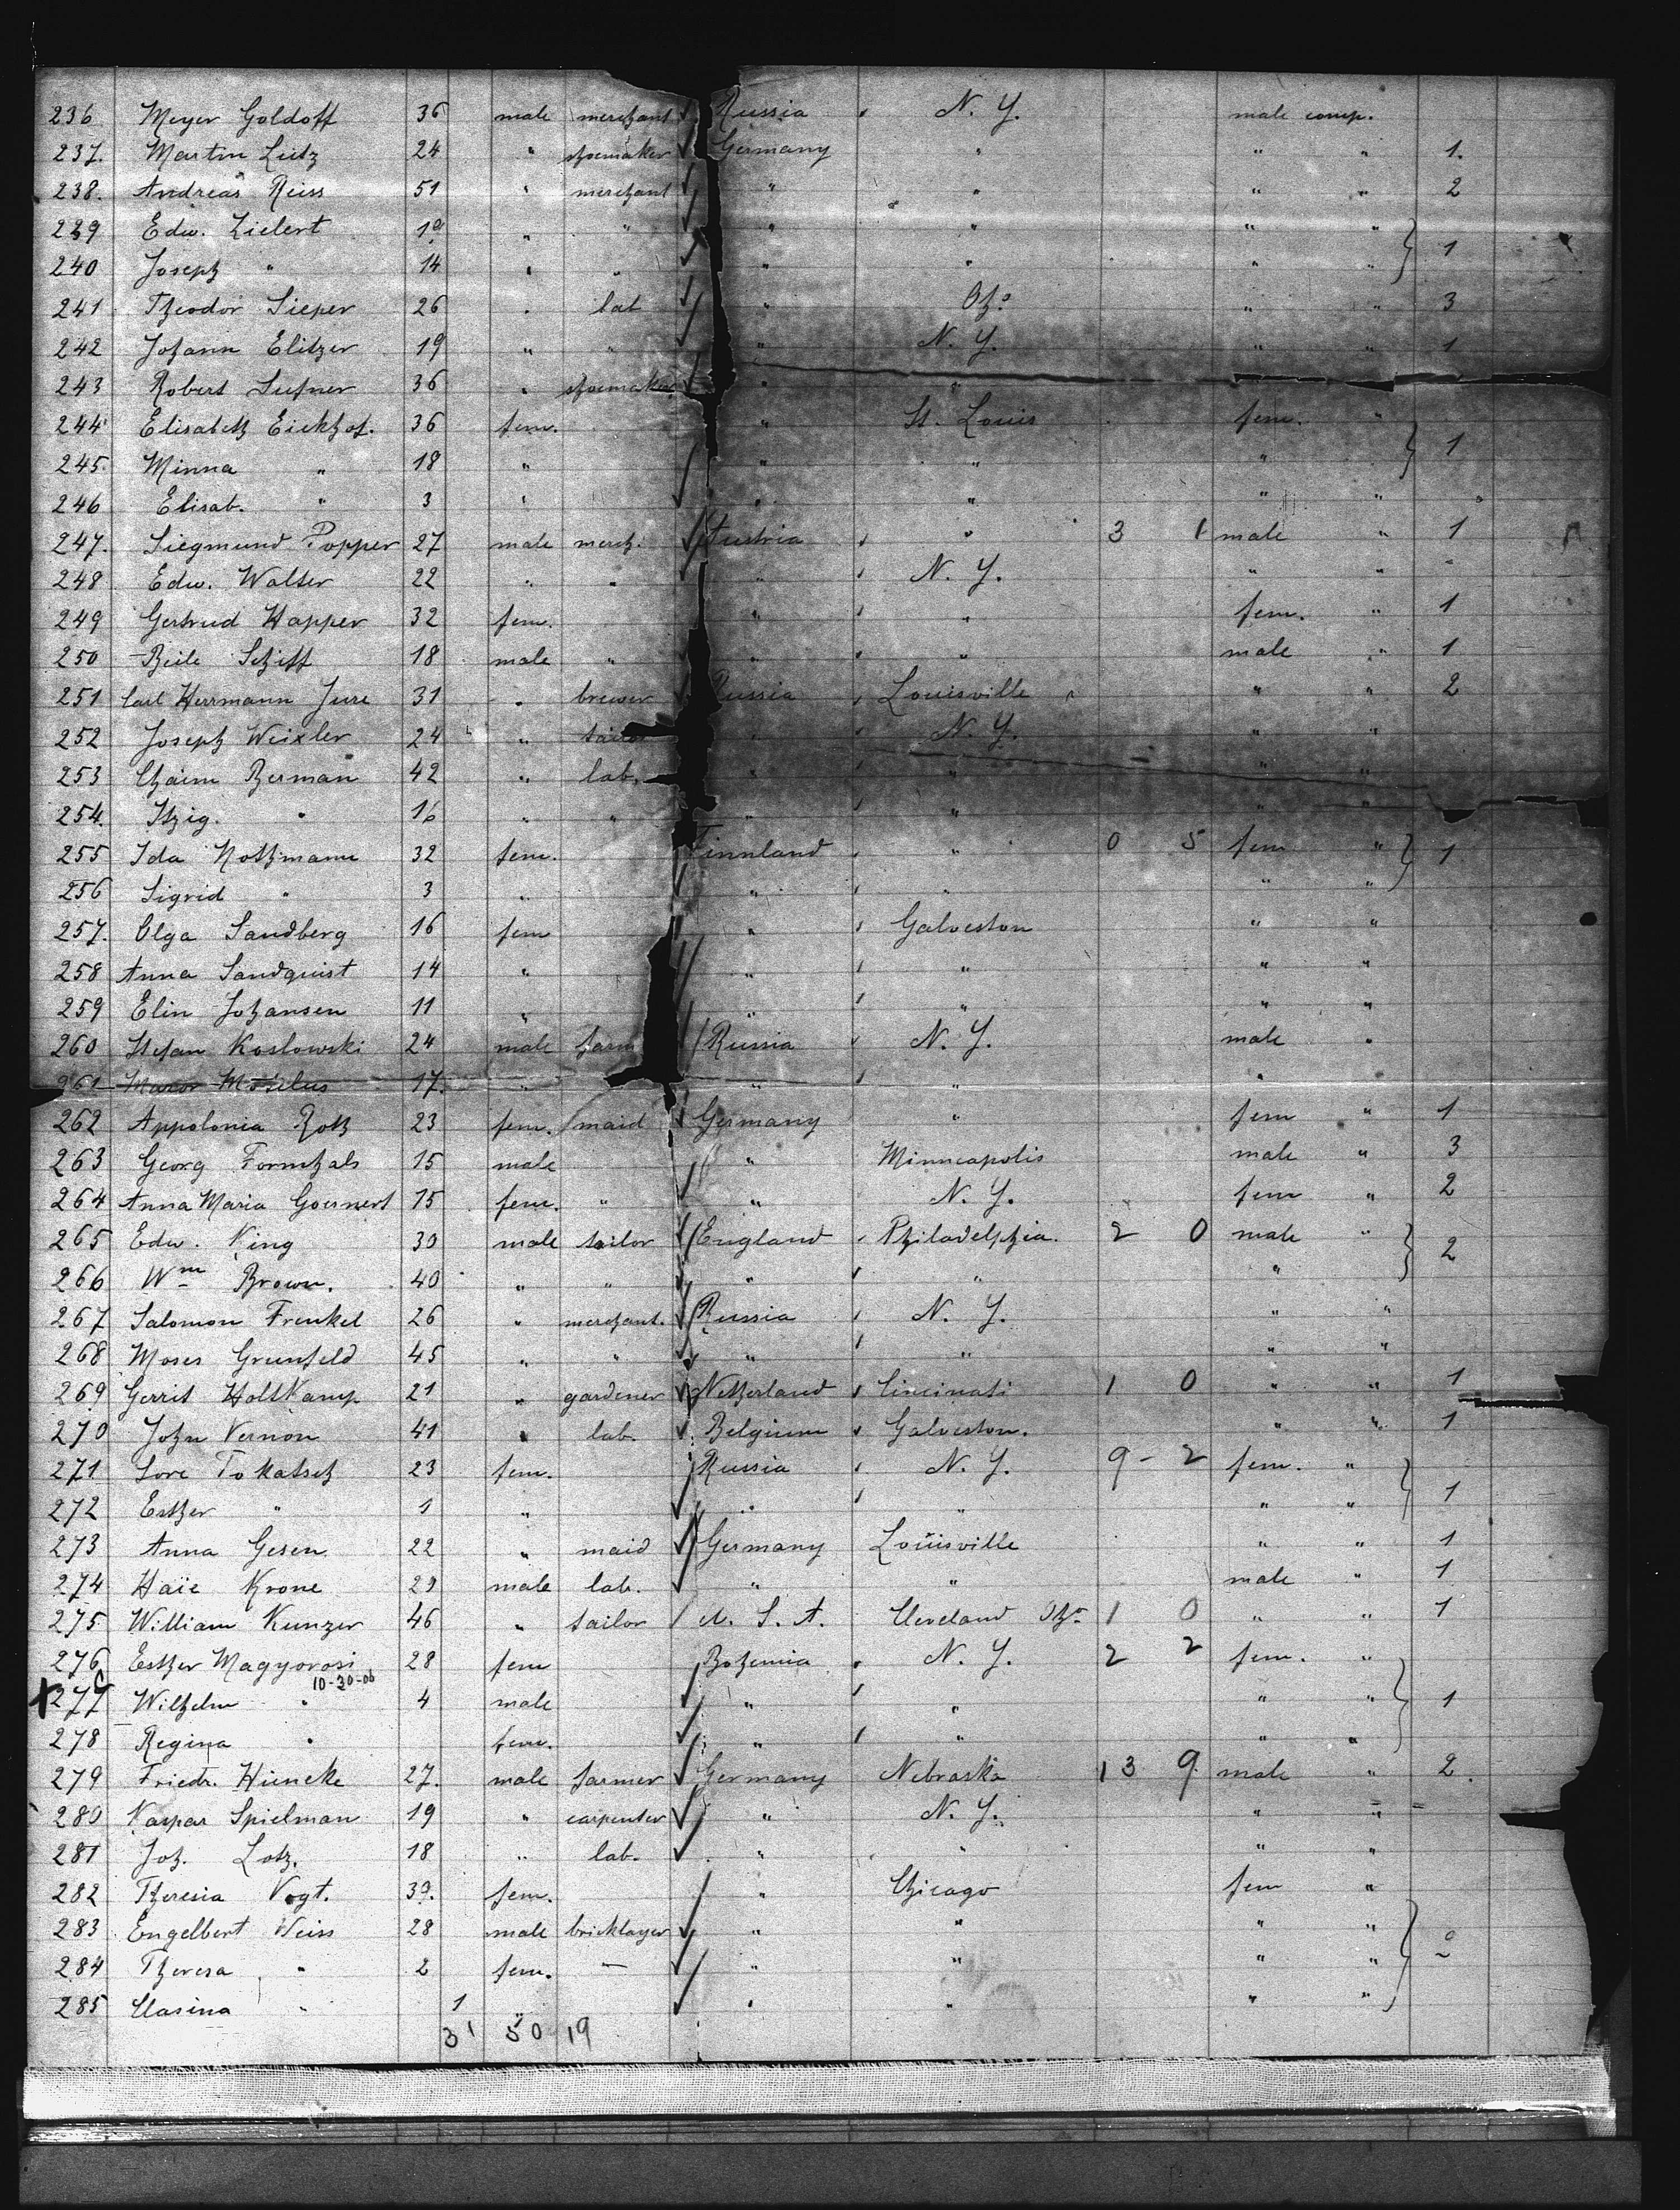 236. Meyer Goldoff 36 male merchant Russia N. Y. male comp.
237. Martin Lutz 24 " shoemaker Germany " " " 1.
238. Andreas Reiss 51 " merchant " " " " 2
239 Edw. Lielert " " " " " "
240 Joseph " 14 " " " " " " 1
241 Theodor Sieper 26 " lab " Oh° " " 3
242 Johann Elitzer 19 " " " N. Y. " " 1
243 Robert 36 " shoemaker " "
244 Elisabeth Eickhof. 36 fem. " St. Louis fem. "
245. Minna " 18 " " " " 1
246 Elisab. " 3 " " " " "
247. Siegmund Popper 27 male merch. Austria " 3 1 male " 1
248 Edw. Walter 22 " " " N. Y. " "
249 Gertrud Happer 32 fem. " " fem. " 1
250 Beile Schiff 18 male " " " male " 1
251 Carl Herrmann Jure 31 " brewer Russia Louisville " " 2
252 Joseph Weixler 24 " tailor " N. Y. " "
253 Chaim Berman 42 " lab. " " " "
254. Itzig. " 16 " " " " " "
255 Ida Nothmann 32 fem. Finnland " 0 5 fem " 1
256 Sigrid " 3 " " " " "
257. Olga Sandberg 16 fem " Galveston " "
258 Anna Sandquist 14 " " " " "
259 Elin Johansen 11 " " " " "
260 Stefan Koslowski 24 male farm Russia N. Y. male "
261 17. " " " "
262 Appolonia Roth 23 fem. maid Germany " fem " 1
263 Georg Formhals 15 male " Minneapolis male " 3
264 Anna Maria Goernert 15 fem. " " N. Y. fem " 2
265 Edw. King 30 male tailor England Philadelphia. 2 0 male "
266 Wm Brown. 40 " " " " " 2
267 Salomon Frenkel 26 " merchant. Russia N. Y. " "
268 Moses Grunfeld 45 " " " " " "
269 Gerrit Holtkamp 21 " gardener Netherland Cincinati 1 0 " " 1
270 John Vernon 41 " lab. Belgium Galveston. " " 1
271 Sore Tokatsch 23 fem. Russia N. Y. 9 - 2 fem. "
272 Esther " 1 " " " " " 1
273 Anna Gesen 22 " maid Germany Louisville " " 1
274 Haïe Krone 29 male lab. " " male " 1
275. William Kunzer 46 " tailor U. S. A. Cleveland Oh° 1 0 " " 1
276 Esther Magyorosi 28 fem Bohemia N. Y. 2 2 fem. "
10-30-06
X 277 Wilhelm " 4 male " " " " 1
278 Regina " fem. " " " "
279 Friedr. Hieneke 27. male farmer Germany Nebraska 13 9 male " 2.
280 Kaspar Spielman 19 " carpenter " N. Y. " "
281 Joh. Lotz. 18 " lab. " " " "
282 Theresia Vogt. 39. fem. " Chicago fem "
283 Engelbert Weiss 28 male bricklayer " " " "
284 Theresa " 2 fem. — " " " "
285 Clasina " 1 " " " " "
31 50 19